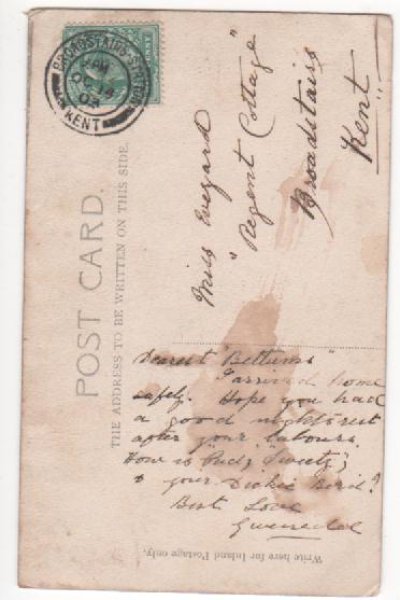 BROADSTAIRS STATION
PM
OC 14
03
KENT
POST CARD.
THE ADDRESS TO BE WRITTEN ON THIS SIDE.
Miss Evezard
"Regent Cottage"
Broadstairs
Kent
Dearest "Bettums"
I arrived home
safely. Hope you had
a good nights rest
after your labours.
How is "Pudz" "Sweetz",
& your Dickie Bird?
Best Love
Gwenedde
Write here for Inland Postage only.